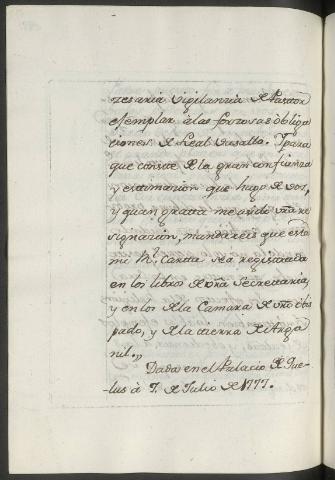 zesaria vigilanzia de Pastor
ejemplar à las forzosas obliga
ciones de Leal Vasallo. Y para
que conste de la gran confianza
y estimazion que hago de vos,
y quan grata me à sido vrã re
signazion, mandareis que esta
mi Rl. Carta sea registrada
en los libros de vrã Secretaria,
y en los de la Camara de vrõ obis
pado, y de la tierra de Arga
nil.,,
Dada en el Palacio de Que-
-lus à 7. de Julio de 1777.